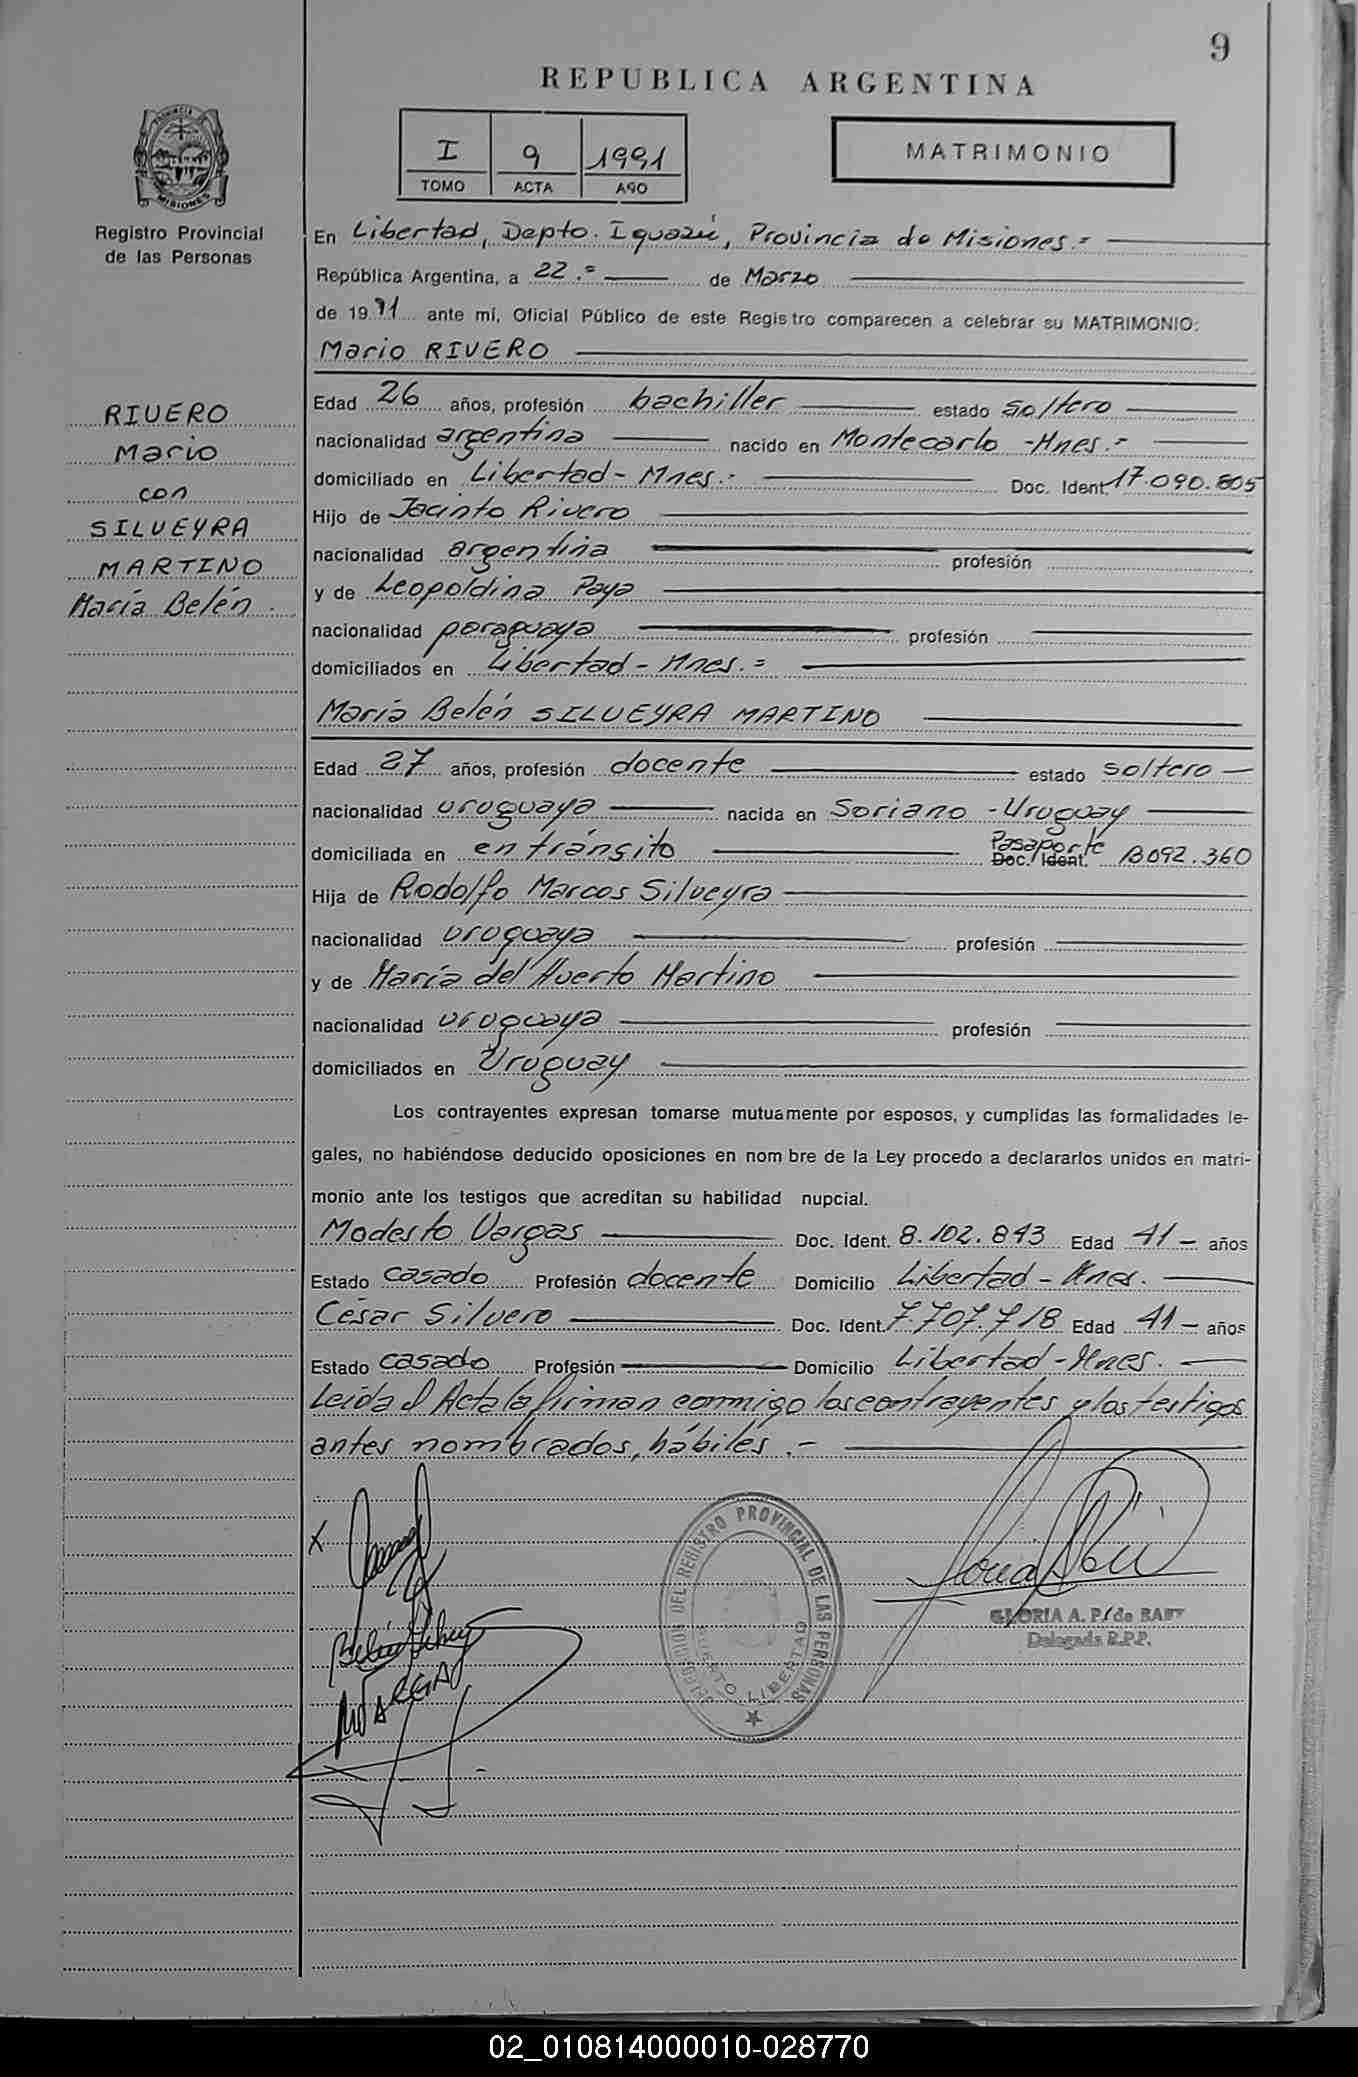 9
REPUBLICA ARGENTINA
I 9 1991
TOMO ACTA AÑO
MATRIMONIO
PROVINCIA DE MISIONES
Registro Provincial
de las Personas
En Libertad, Depto. Iguazú, Provincia de Misiones.=
República Argentina, a 22.= de Marzo
de 1991 ante mí, Oficial Público de este Registro comparecen a celebrar su MATRIMONIO:
Mario RIVERO
RIVERO
Mario
con
SILVEYRA
MARTINO
María Belén.
Edad 26 años, profesión bachiller estado soltero
nacionalidad argentina nacido en Montecarlo -Mnes.=
domiciliado en Libertad - Mnes.= Doc. Ident. 17.090.805
Hijo de Jacinto Rivero
nacionalidad argentina profesión
y de Leopoldina Paya
nacionalidad paraguaya profesión
domiciliados en Libertad - Mnes.=
María Belén SILVEYRA MARTINO
Edad 27 años, profesión docente estado soltero
nacionalidad uruguaya nacida en Soriano - Uruguay
domiciliada en en tránsito Pasaporte Doc. Ident. B092.360
Hija de Rodolfo Marcos Silveyra
nacionalidad uruguaya profesión
y de María del Huerto Martino
nacionalidad uruguaya profesión
domiciliados en Uruguay
Los contrayentes expresan tomarse mutuamente por esposos, y cumplidas las formalidades le-
gales, no habiéndose deducido oposiciones en nombre de la Ley procedo a declararlos unidos en matri-
monio ante los testigos que acreditan su habilidad nupcial.
Modesto Vargas Doc. Ident. 8.102.843 Edad 41 años
Estado casado Profesión docente Domicilio Libertad - Mnes.
César Silvero Doc. Ident. 7.707.718 Edad 41 años
Estado casado Profesión Domicilio Libertad - Mnes.
Leída el Acta la firman conmigo los contrayentes y los testigos
antes nombrados, hábiles.-
X
DEL REGISTRO PROVINCIAL DE LAS PERSONAS
PUERTO LIBERTAD
GLORIA A. P. de
Delegada R.P.P.
02_010814000010-028770